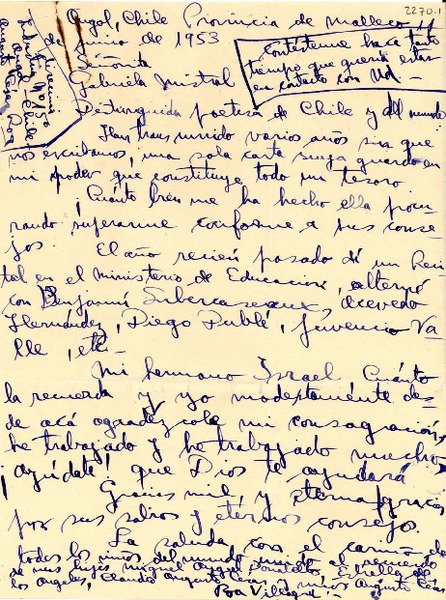 2270-1
Angol, Chile Provincia de Malleco 11
de Junio de 1953
Señorita
Gabriela Mistral
Contésteme hace tanto
tiempo que quería estar
en contacto con Ud. -
Distinguida poetisa de Chile y del mundo
Han transcurrido varios años sin que
nos escribamos, una sola carta suya guardo en
mi poder que constituye todo un tesoro.
¡Cuánto bien me ha hecho ella procu-
rando superarme conforme a sus conse-
jos. El año recién pasado di un Reci
tal en el Ministerio de Educación, alterné
con Benjamín Subercaseaux, Acevedo
Hernández, Diego Dublé, Juvencio Va-
lle, etc-
Mi hermano Israel Cuánto
la recuerda y yo modestamente des-
de acá agradézcole mi consagración,
he trabajado y he trabajado mucho
¡ayúdate! que Dios te ayudará
Gracias mil, y eternas gracias
por sus sabios y eternos consejos.
La saluda con el cariño de
todos los niños del mundo unido al recuerdo
de mis hijos Miguel Angel
los Angeles, Claudio Augusto César y Augusto César
Roa Villagra